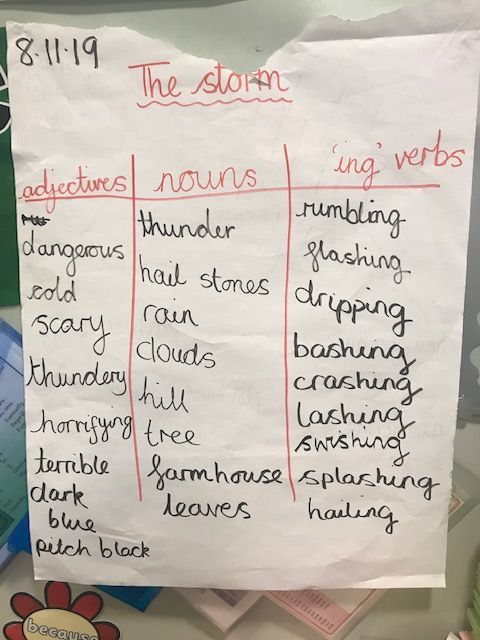 8.11.19
The storm
adjectives nouns 'ing' verbs
thunder rumbling
dangerous flashing
cold hail stones dripping
scary rain
clouds bashing
thundery hill crashing
horrifying tree lashing
swishing
terrible farmhouse splashing
dark leaves hailing
blue
pitch black
because